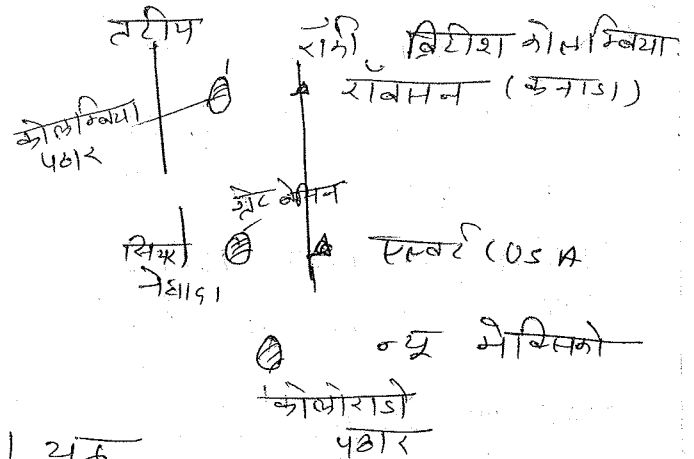 तटीय रॉकी ब्रिटीश कोलम्बिया
रॉबसन (कनाडा)
कोलम्बिया
पठार
ग्रेट बेसिन
सियरा
नेवादा
एल्बर्ट (USA
न्यू मेक्सिको
कोलोराडो
पठार